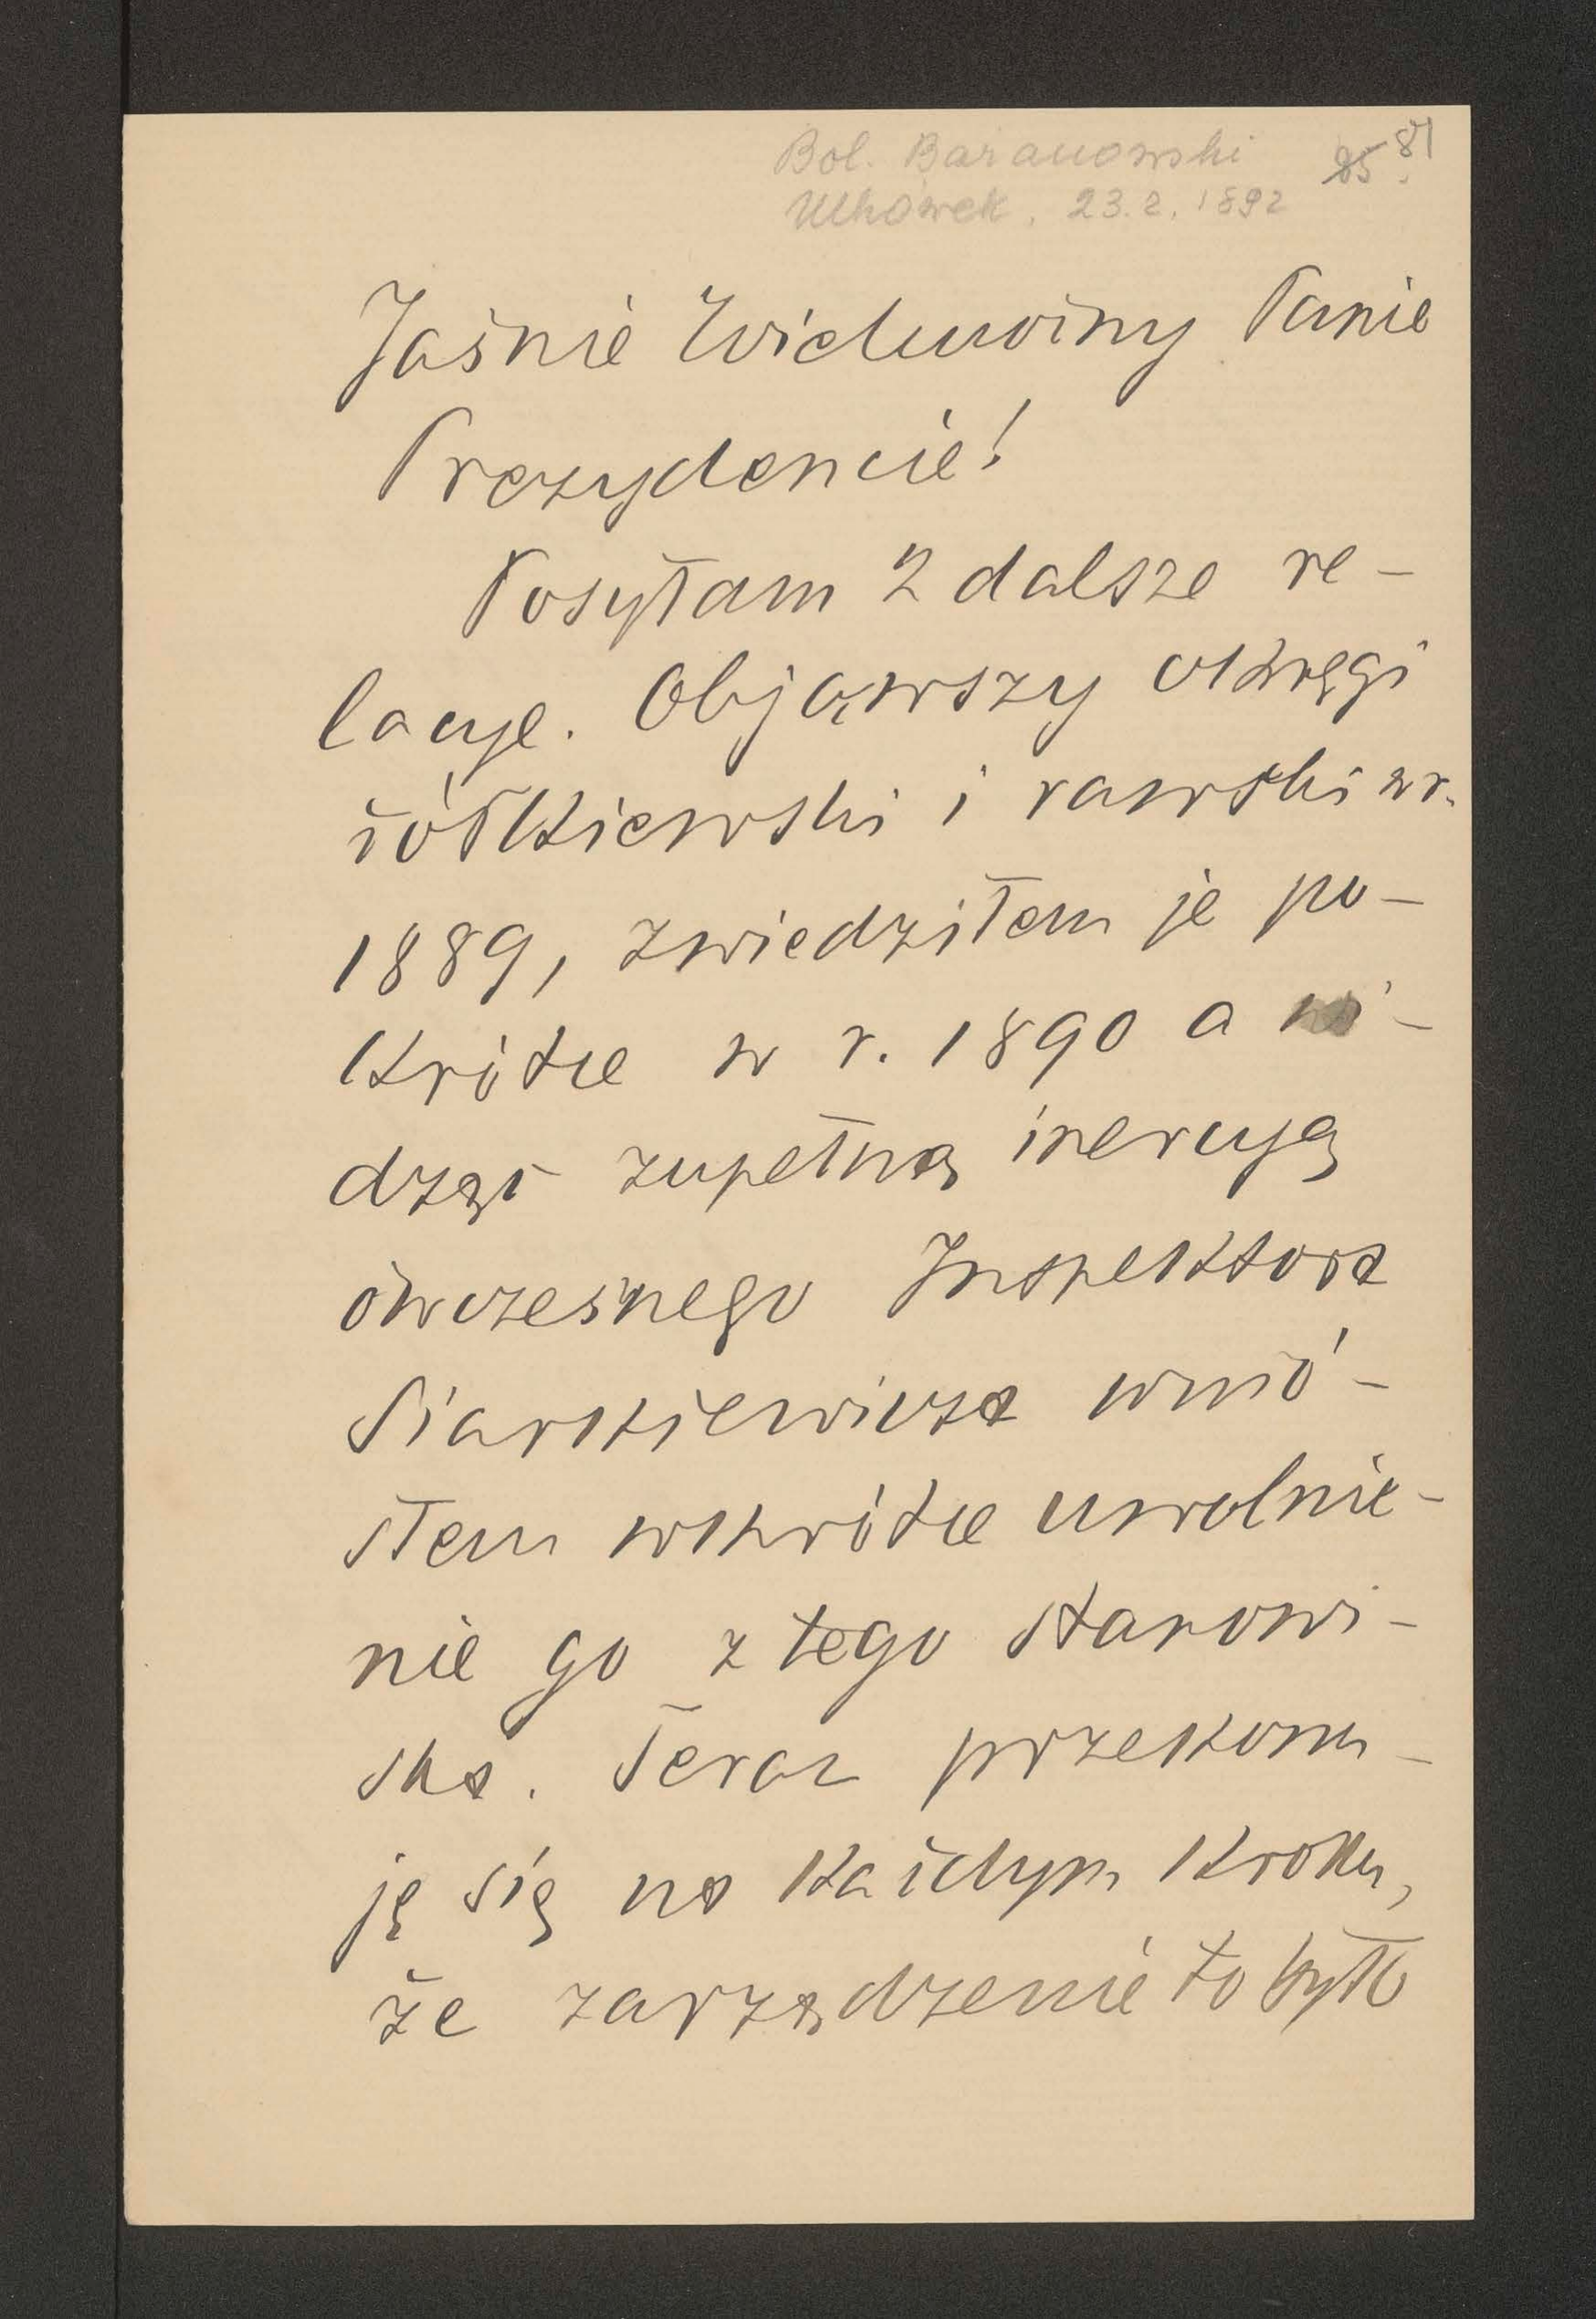 Bol. Baranowski
Uhnówek. 23.2.1892
85 81
Jaśnie Wielmożny Panie
Prezydencie!
Posyłam 2 dalsze re-
lacye. Objąwszy okręgi
żółkiewski i rawski w r.
1889, zwiedziłem je po-
krótce w r. 1890 a wi-
dząc zupełną inercyą
ówczesnego Inspektora
Siarkiewicza wnió-
słem wkrótce uwolnie-
nie go z tego stanowi-
ska. Teraz przekonu-
ję się na każdym kroku,
że zarządzenie to było